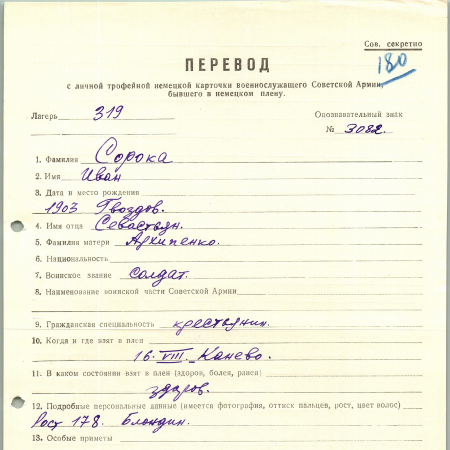 Сов. секретно
180
ПЕРЕВОД
с личной трофейной немецкой карточки военнослужащего Советской Армии,
бывшего в немецком плену.
Лагерь 319 Опознавательный знак
№ 3082.
1. Фамилия Сорока
2. Имя Иван
3. Дата и место рождения
1903 Гвоздов.
4. Имя отца Севастьян.
5. Фамилия матери Архипенко.
6. Национальность
7. Воинское звание солдат.
8. Наименование воинской части Советской Армии
9. Гражданская специальность крестьянин.
10. Когда и где взят в плен
16. VIII. Канево.
11. В каком состоянии взят в плен (здоров, болен, ранен)
здоров.
12. Подробные персональные данные (имеется фотография, оттиск пальцев, рост, цвет волос)
Рост 178. Блондин.
13. Особые приметы